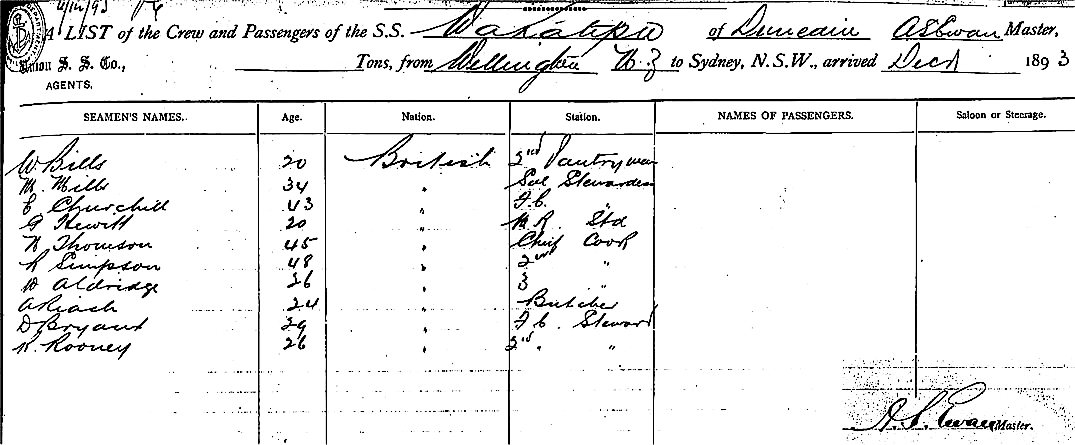 4/12/93
A LIST of the Crew and Passengers of the S.S. Wakatipu of Dunedin Master,
Union S. S. Co., Tons, from Wellington N.Z to Sydney, N.S.W., arrived Decr 1893
AGENTS.
SEAMEN'S NAMES. Age. Nation. Station. NAMES OF PASSENGERS. Saloon or Steerage.
W Bills 20 British 2nd Pantryman
M. Mills 34 " Sal Stewardess
E Churchill 43 " F.C. "
G Hewitt 20 " Std
N Thomson 45 " Chief Cook
R Simpson 48 " 2nd "
W Aldridge 26 " 3 "
A Riach 24 " Butcher
D Bryant 29 " F.C. Steward
R. Rooney 26 " 2nd " "
Master.